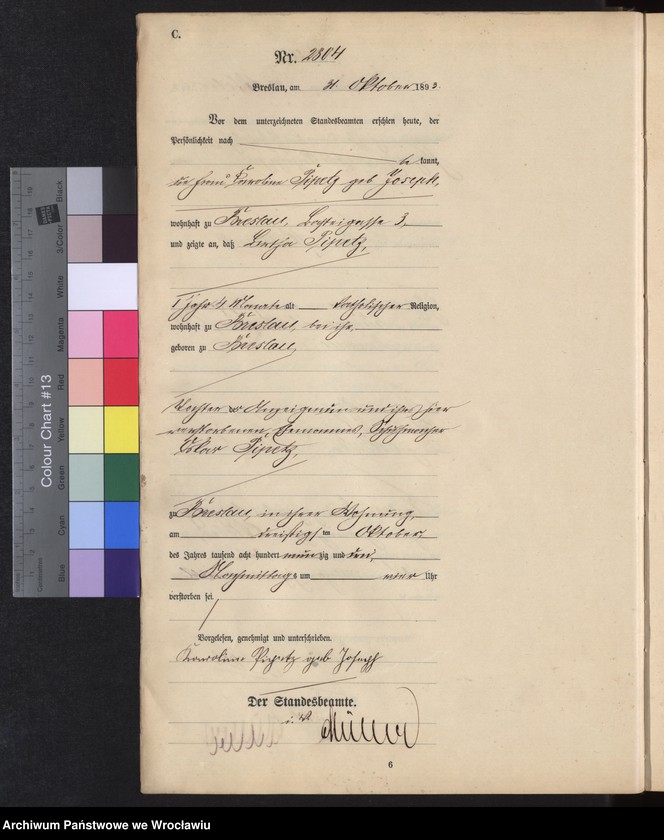 C.
Nr. 2804
Breslau, am 31. Oktober 1893.
Vor dem unterzeichneten Standesbeamten erschien heute, der
Persönlichkeit nach
be kannt,
die Frau Karoline Pipetz geb Joseph,
wohnhaft zu Breslau, 3,
und zeigte an, daß Pipetz,
1 Jahr 4 Monate alt katholischer Religion,
wohnhaft zu Breslau, bei ihr,
geboren zu Breslau,
Tochter der Anzeigerin und ihres hier
verstorbenen Ehemannes,
Oskar Pipetz,
zu Breslau, in ihrer Wohnung,
am dreißigsten Oktober
des Jahres tausend acht hundert neunzig und drei,
Nachmittags um Uhr
verstorben sei.
Vorgelesen, genehmigt und unterschrieben.
Karoline Pipetz geb Joseph
Der Standesbeamte.
Müller
6
Colour Chart #13
Blue
Cyan
Green
Yellow
Red
Magenta
White
3/Color
Black
Centimetres
Archiwum Państwowe we Wrocławiu